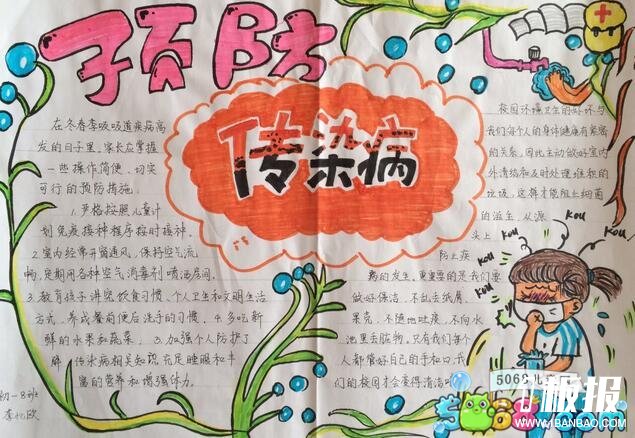 预防
传染病
在冬春季吸吸道疾病高
发的日子里,家长应掌握
一些操作简便、切实
可行的预防措施。
1.严格按照儿童计
划免疫接种程序按时接种。
2.室内经常开窗通风,保持空气流
畅,定期用各种空气消毒剂喷洒房间。
3.教育孩子讲究饮食习惯、个人卫生和文明生活
方式,养成餐前便后洗手的习惯。4.多吃新
鲜的水果和蔬菜。5.加强个人防护了
解传染病相关知识充足睡眠和丰
富的营养和增强体力。
初一8班
校园环境卫生的好坏与
我们每个人的身体健康有紧密
的关系,因此主动做好室内
外清洁和及时处理堆积的
垃圾,这样才能阻止细菌
的滋生,从源
头上
防止疾
病的发生。更重要的是我们要
做好保洁,不乱丢纸屑、
果壳,不随地吐痰,不向水
池里丢脏物。只有我们每个
人都管好自己的手和口,我
们的校园才会变得清洁
Kou
Kou
Kou
Kou
Kou
5068儿
板报
WWW.1BANBAO.COM